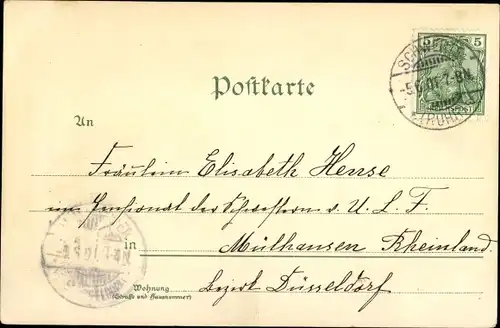 5 5
SCHWERTE
-5.6.01.7-8N.
(RUHR)
Postkarte
An
Fräulein Elisabeth Hense
im Pensionat der Schwestern v. U. L. F.
in Mülhausen Rheinland.
Wohnung
(Straße und Hausnummer)
Bezirk Düsseldorf